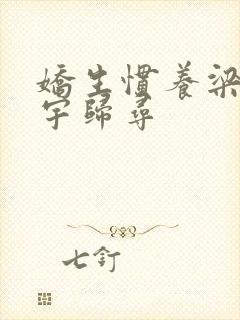 嬌生慣養梁
宇歸尋
七釘